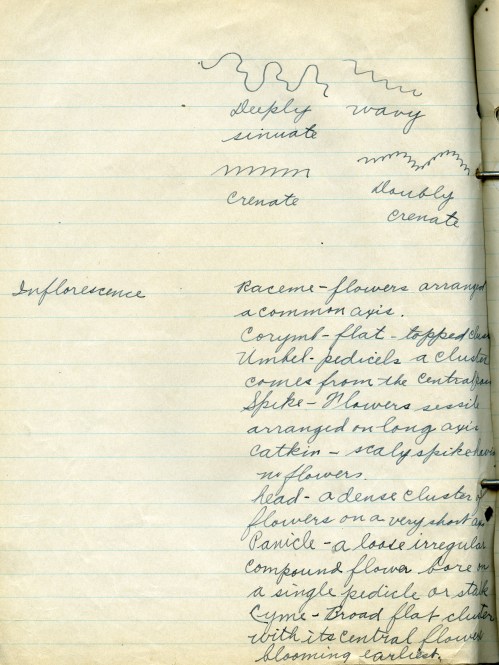 Deeply wavy
sinuate
crenate Doubly
crenate
Inflorescence Raceme - flowers arranged
a common axis.
Corymb - flat - topped
Umbel - pedicels a cluster
comes from the central
Spike - Flowers sessile
arranged on long axis
Catkin - scaly spike
flowers.
head - a dense cluster of
flowers on a very short
Panicle - a loose irregular
compound flower bore on
a single pedicle or stalk
Cyme - Broad flat cluster
with its central flowers
blooming earliest.